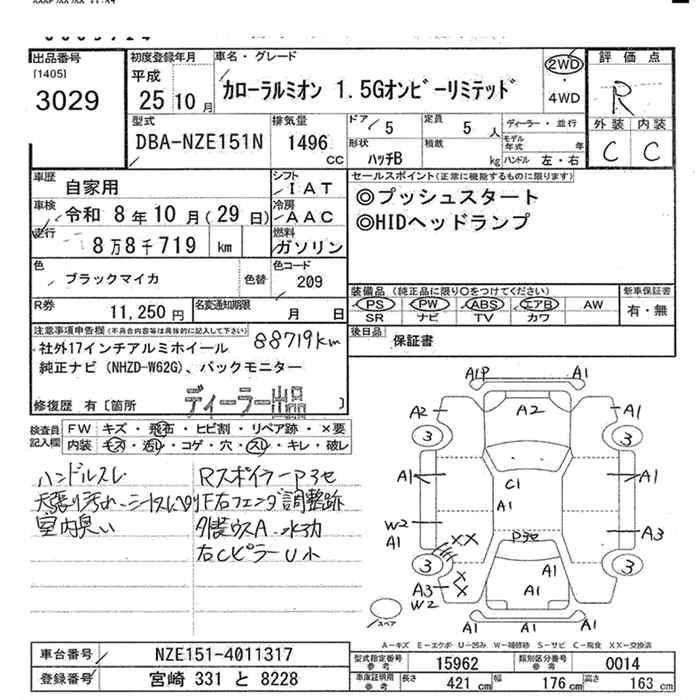 出品番号
[1405]
3029
初度登録年月
平成
25 10月
車名・グレード
カローラルミオン 1.5Gオンビーリミテッド
2WD
・
4WD
評価点
R
外装 内装
C C
型式
DBA-NZE151N
排気量
1496
CC
ドア
5
定員
5 人
ディーラー・並行
形状
ハッチB
積載
kg
モデル年式 年
ハンドル 左・右
車歴
自家用
シフト
IAT
車検
令和 8年10月(29日)
冷房
AAC
走行
8万8千719 km
燃料
ガソリン
セールスポイント(正常に機能するものに限ります)
◎プッシュスタート
◎HIDヘッドランプ
色
ブラックマイカ
色替
色コード
209
R券
11,250円
名変通知期限
月 日
装備品(純正品に限り○をつけてください)
PS PW ABS エアB AW
SR ナビ TV カワ
新車保証書
有・無
後日品
保証書
注意事項申告欄(不具合内容等は具体的に記入して下さい)
88719km
社外17インチアルミホイール
純正ナビ(NHZD-W62G)、バックモニター
ディーラー出品
修復歴 有[箇所 ]
検査員記入欄
FW キズ・飛石・ヒビ割・リペア跡・×要
内装 キズ・汚レ・コゲ・穴・スレ・キレ・破レ
ハンドルスレ
室内臭い
RスポイラーP3セ
F右フェンダ調整跡
右CピラーU小
A1P A1
A2 A2 A1
3 3
A1 C1 A1
A1
W2
A1
XX P3セ A3
3 3
A3
W2
X
X
A1
A2 A1
A1 A1 A1
スペア
A-キズ E-エクボ U-凹み W-補修跡 S-サビ C-腐食 XX-交換済
車台番号
NZE151-4011317
登録番号
宮崎 331 と 8228
型式指定番号
参考
15962
類別区分番号
参考
0014
車庫証明用
参考
長さ 421 cm 幅 176 cm 高さ 163 cm